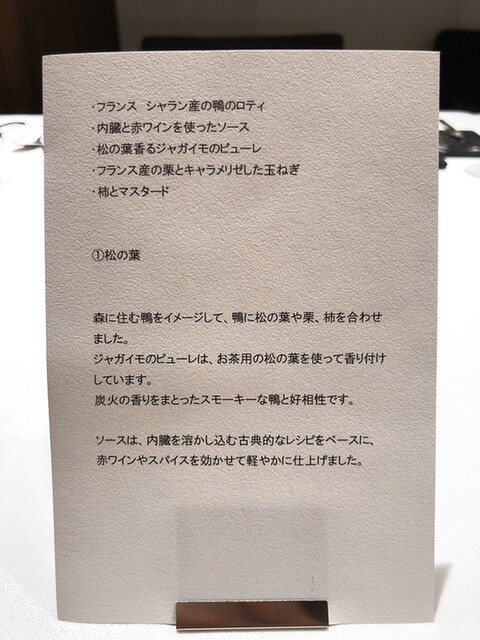 ・フランス　シャラン産の鴨のロティ
・内臓と赤ワインを使ったソース
・松の葉香るジャガイモのピューレ
・フランス産の栗とキャラメリゼした玉ねぎ
・柿とマスタード
①松の葉
森に住む鴨をイメージして、鴨に松の葉や栗、柿を合わせ
ました。
ジャガイモのピューレは、お茶用の松の葉を使って香り付け
しています。
炭火の香りをまとったスモーキーな鴨と好相性です。
ソースは、内臓を溶かし込む古典的なレシピをベースに、
赤ワインやスパイスを効かせて軽やかに仕上げました。